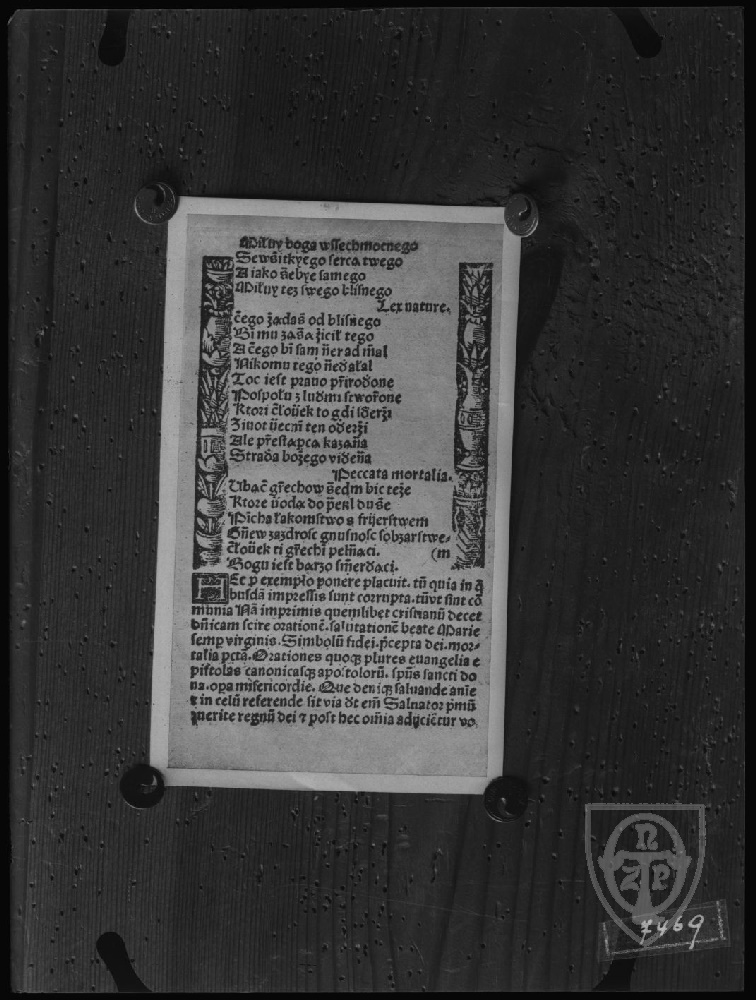 Miłuy boga wssechmocnego
Sewsitkyego serca twego
A iako siebye samego
Miłuy tez swego blisnego
Lex nature.
čego żadaš od blisnego
Bi mu zasa żicił tego
A čego bi sam nerad mal
Nikomu tego nedałal
Toc iest prawo přirodone
Pospołu z ludmi stwořone
Ktori čłowek to gdi sderži
Ziwot wecni ten oderži
Ale přestapca kazana
Strada bożego widena
Peccata mortalia.
Ubač gřechow sedm bic teże
Ktore woda do pekl duše
Picha łakomstwo s frijerstwem
Gnew zazdrosc gnusnosc sobzarstwe-
čłowek ti gřechi pelnaci. (m
Bogu iest barzo smerdaci.
HEc p exemplo ponere placuit. tū quia in q̄
busdā impressis sunt corrupta. tū vt sint cō
munia Nā imprimis quemlibet cristianū decet
dn̄icam scire orationē. salutationē beate Marie
semp virginis. Simbolū fidei. p̄cepta dei. mor-
talia pctā. Orationes quoqꝫ plures euangelia e
pistolas canonicasqꝫ apostolorū. spūs sancti do
na. opa misericordie. Que deniqꝫ saluande anīe
⁊ in celū referende sit via dt em̄ Saluator pm̄ū
querite regnū dei ⁊ post hec om̄ia adijciētur vo.
NZP
7469